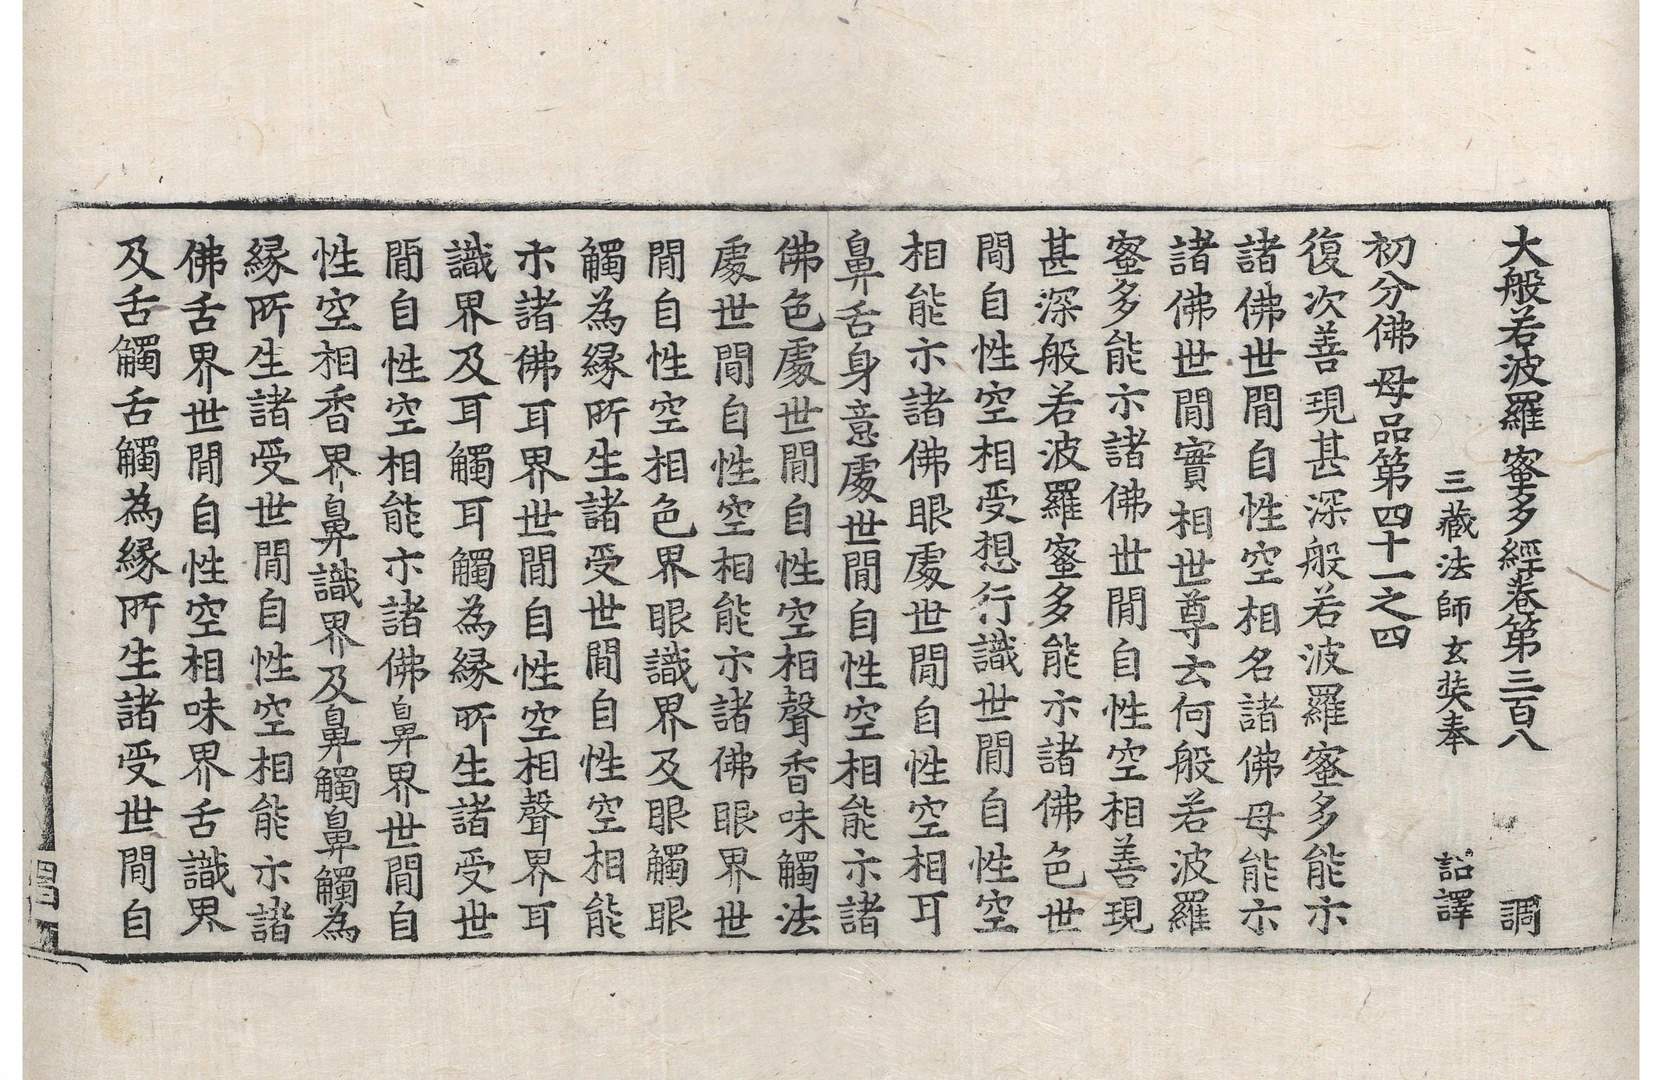 大般若波羅蜜多經卷第三百八 調
三藏法師玄奘奉 詔譯
初分佛母品第四十一之四
復次善現甚深般若波羅蜜多能示
諸佛世間自性空相名諸佛母能示
諸佛世間實相世尊云何般若波羅
蜜多能示諸佛世間自性空相善現
甚深般若波羅蜜多能示諸佛色世
間自性空相受想行識世間自性空
相能示諸佛眼處世間自性空相耳
鼻舌身意處世間自性空相能示諸
佛色處世間自性空相聲香味觸法
處世間自性空相能示諸佛眼界世
間自性空相色界眼識界及眼觸眼
觸為緣所生諸受世間自性空相能
示諸佛耳界世間自性空相聲界耳
識界及耳觸耳觸為緣所生諸受世
間自性空相能示諸佛鼻界世間自
性空相香界鼻識界及鼻觸鼻觸為
緣所生諸受世間自性空相能示諸
佛舌界世間自性空相味界舌識界
及舌觸舌觸為緣所生諸受世間自